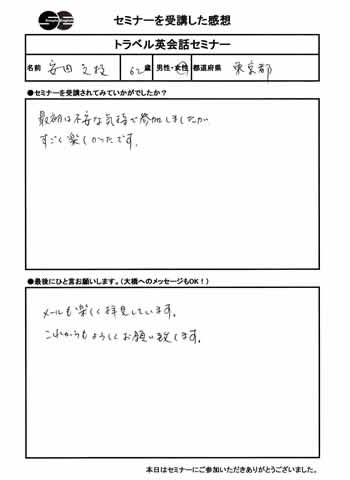 セミナーを受講した感想
トラベル英会話セミナー
名前 安田 文枝 62歳 男性・女性 都道府県 東京都
●セミナーを受講されてみていかがでしたか?
最初は不安な気持で参加しましたが
すごく楽しかったです。
●最後にひと言お願いします。(大橋へのメッセージもOK!)
メールも楽しく拝見しています。
これからもよろしくお願い致します。
本日はセミナーにご参加いただきありがとうございました。